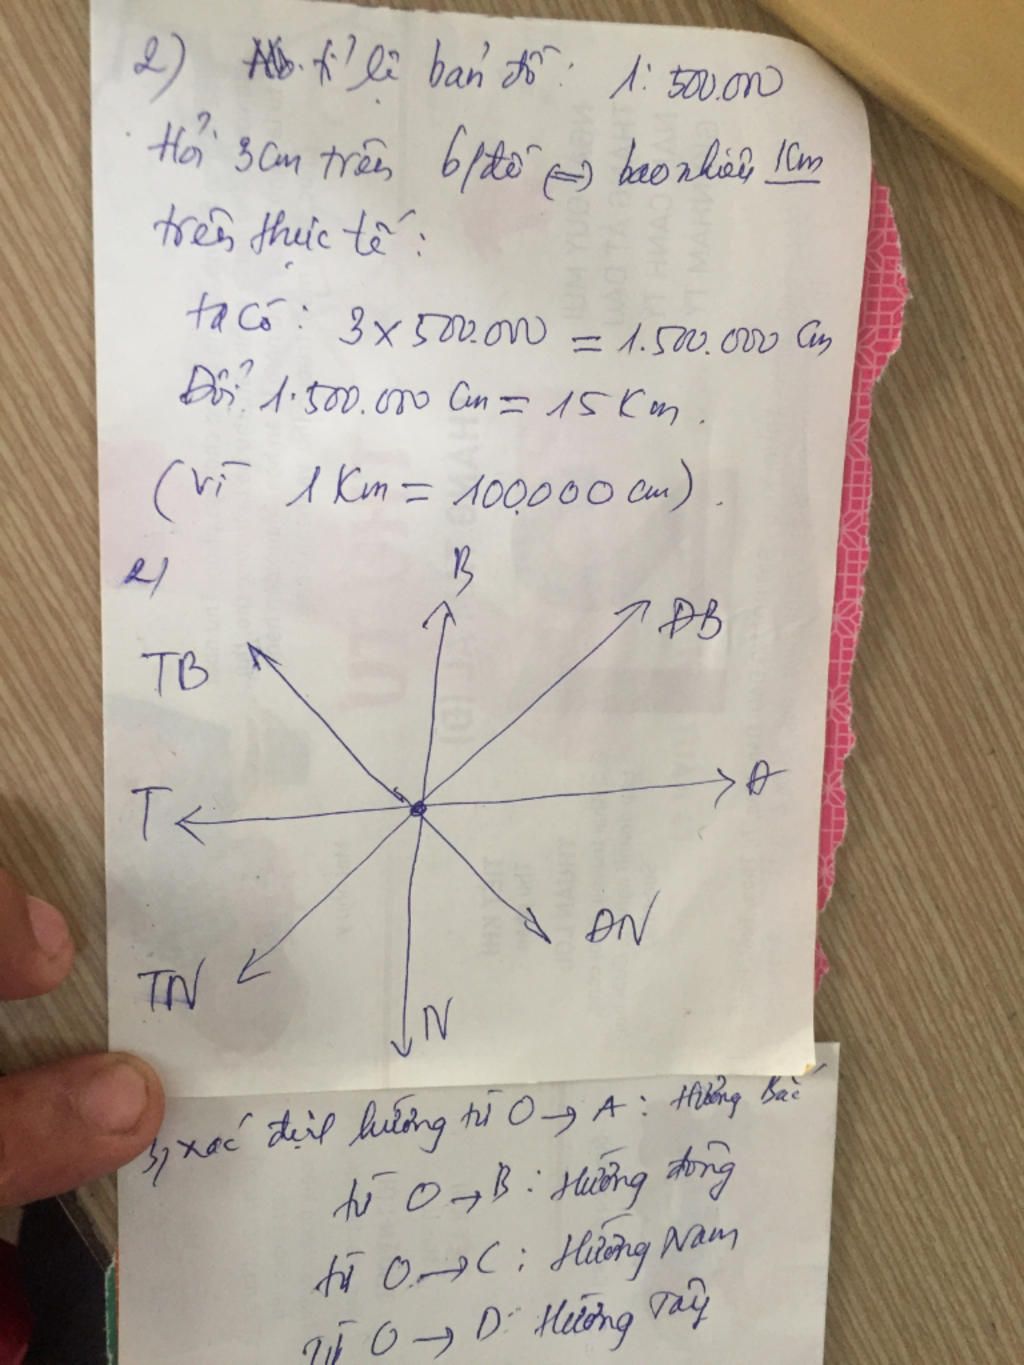 2) tỉ lệ bản đồ: 1: 500.000
Hỏi 3cm trên b/đồ (=) bao nhiêu Km
trên thực tế:
ta có: 3 x 500.000 = 1.500.000 Cm
Đổi 1.500.000 Cm = 15 Km.
(Vì 1 Km = 100.000 cm).
2)
B
ĐB
TB
Đ
T
ĐN
TN
N
3, xác định hướng từ O → A: Hướng Bắc
từ O → B: Hướng đông
từ O → C: Hướng Nam
từ O → D: Hướng Tây